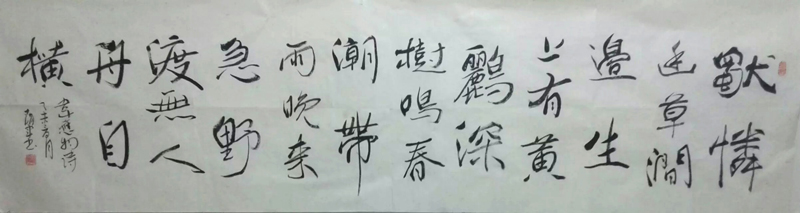 獨憐
幽草澗
邊生
上有黃
鸝深
樹鳴春
潮帶
雨晚來
急野
渡無人
舟自
橫
韋應物詩